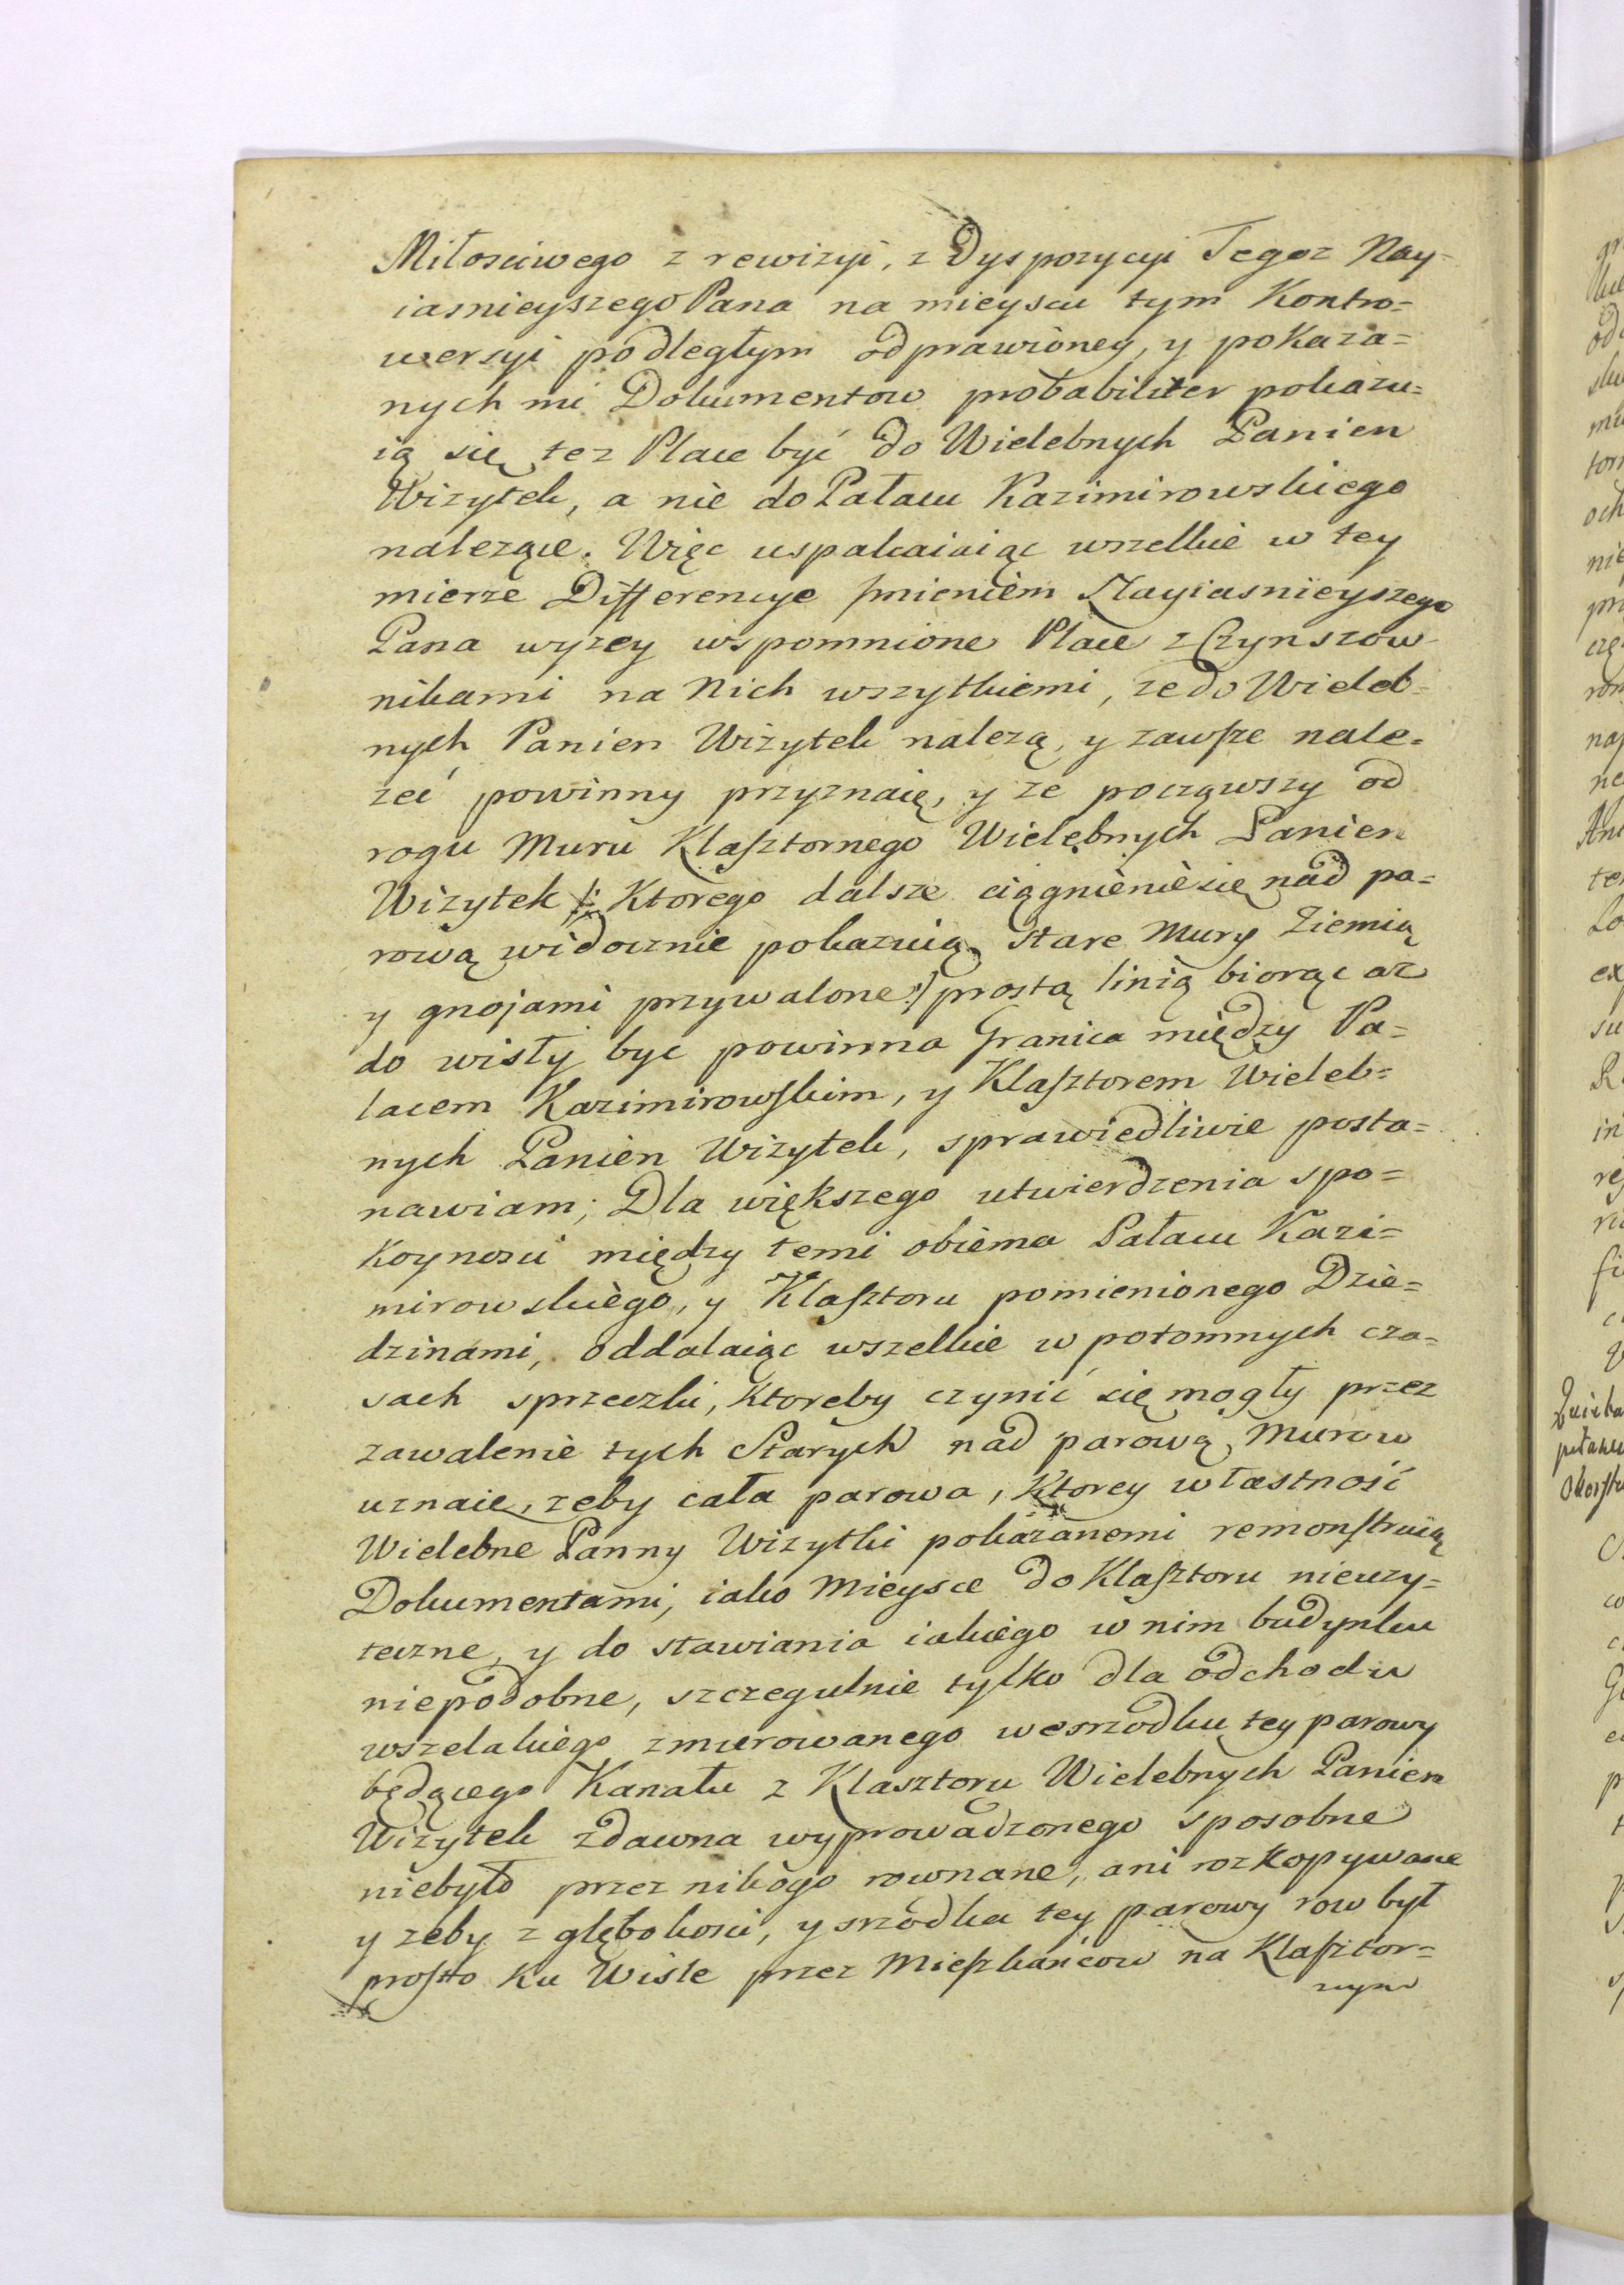 Miłosciwego z rewizyi, z Dyspozycyi Tegoz Nay-
iasnieyszego Pana na mieyscu tym Kontro=
wersyi podległym odprawioney, y pokaza=
nych mi Dokumentow probabiliter pokazu=
ią się tez Place być do Wielebnych Panien
Wizytek, a nie do Pałacu Kazimirowskiego
nalezące. Więc uspakaiaiąc wszelkie w tey
mierze Differencye Jmieniem Nayiasnieyszego
Pana wyzey wspomnione Place z Czynszow
nikami na Nich wszytkiemi, ze do Wieleb=
nych Panien Wizytek nalezą, y zawsze nale=
zeć powinny przyznaię, y ze począwszy od
rogu Muru Klasztornego Wielebnych Panien
Wizytek /: Ktorego dalsze ciągnienie się nad pa=
rową widocznie pokazuią stare Mury Ziemią
y gnojami przywalone :/ prostą linią biorąc az
do wisły byc powinna Granica między Pa=
łacem Kazimirowskim, y Klasztorem Wieleb=
nych Panien Wizytek, sprawiedliwie posta=
nawiam; Dla większego utwierdzenia spo=
koynosci między temi obiema Pałacu Kazi=
mirowskiego, y Klasztoru pomienionego Dzie=
dzinami, oddalaiąc wszelkie w potomnych cza=
sach sprzeczki, Ktoreby czynić się mogły przez
zawalenie tych Starych nad parową Murow
uznaię, zeby cała parowa, Ktorey własność
Wielebne Panny Wizytki pokazanemi remonstruią
Dokumentami, iako Mieysce do Klasztoru nieuzy=
teczne, y do stawiania iakiego w nim budynku
niepodobne, szczegulnie tylko dla odchodu
wszelakiego zmurowanego wesrzodku tey parowy
będącego Kanału z Klasztoru Wielebnych Panien
Wizytek zdawna wyprowadzonego sposobne
niebyło przez nikogo rownane, ani rozkopywane
y zeby z głębokosci, y srzodka tey parowy row był
prosto ku Wisle przez Mieszkańcow na Klasztor=
nym